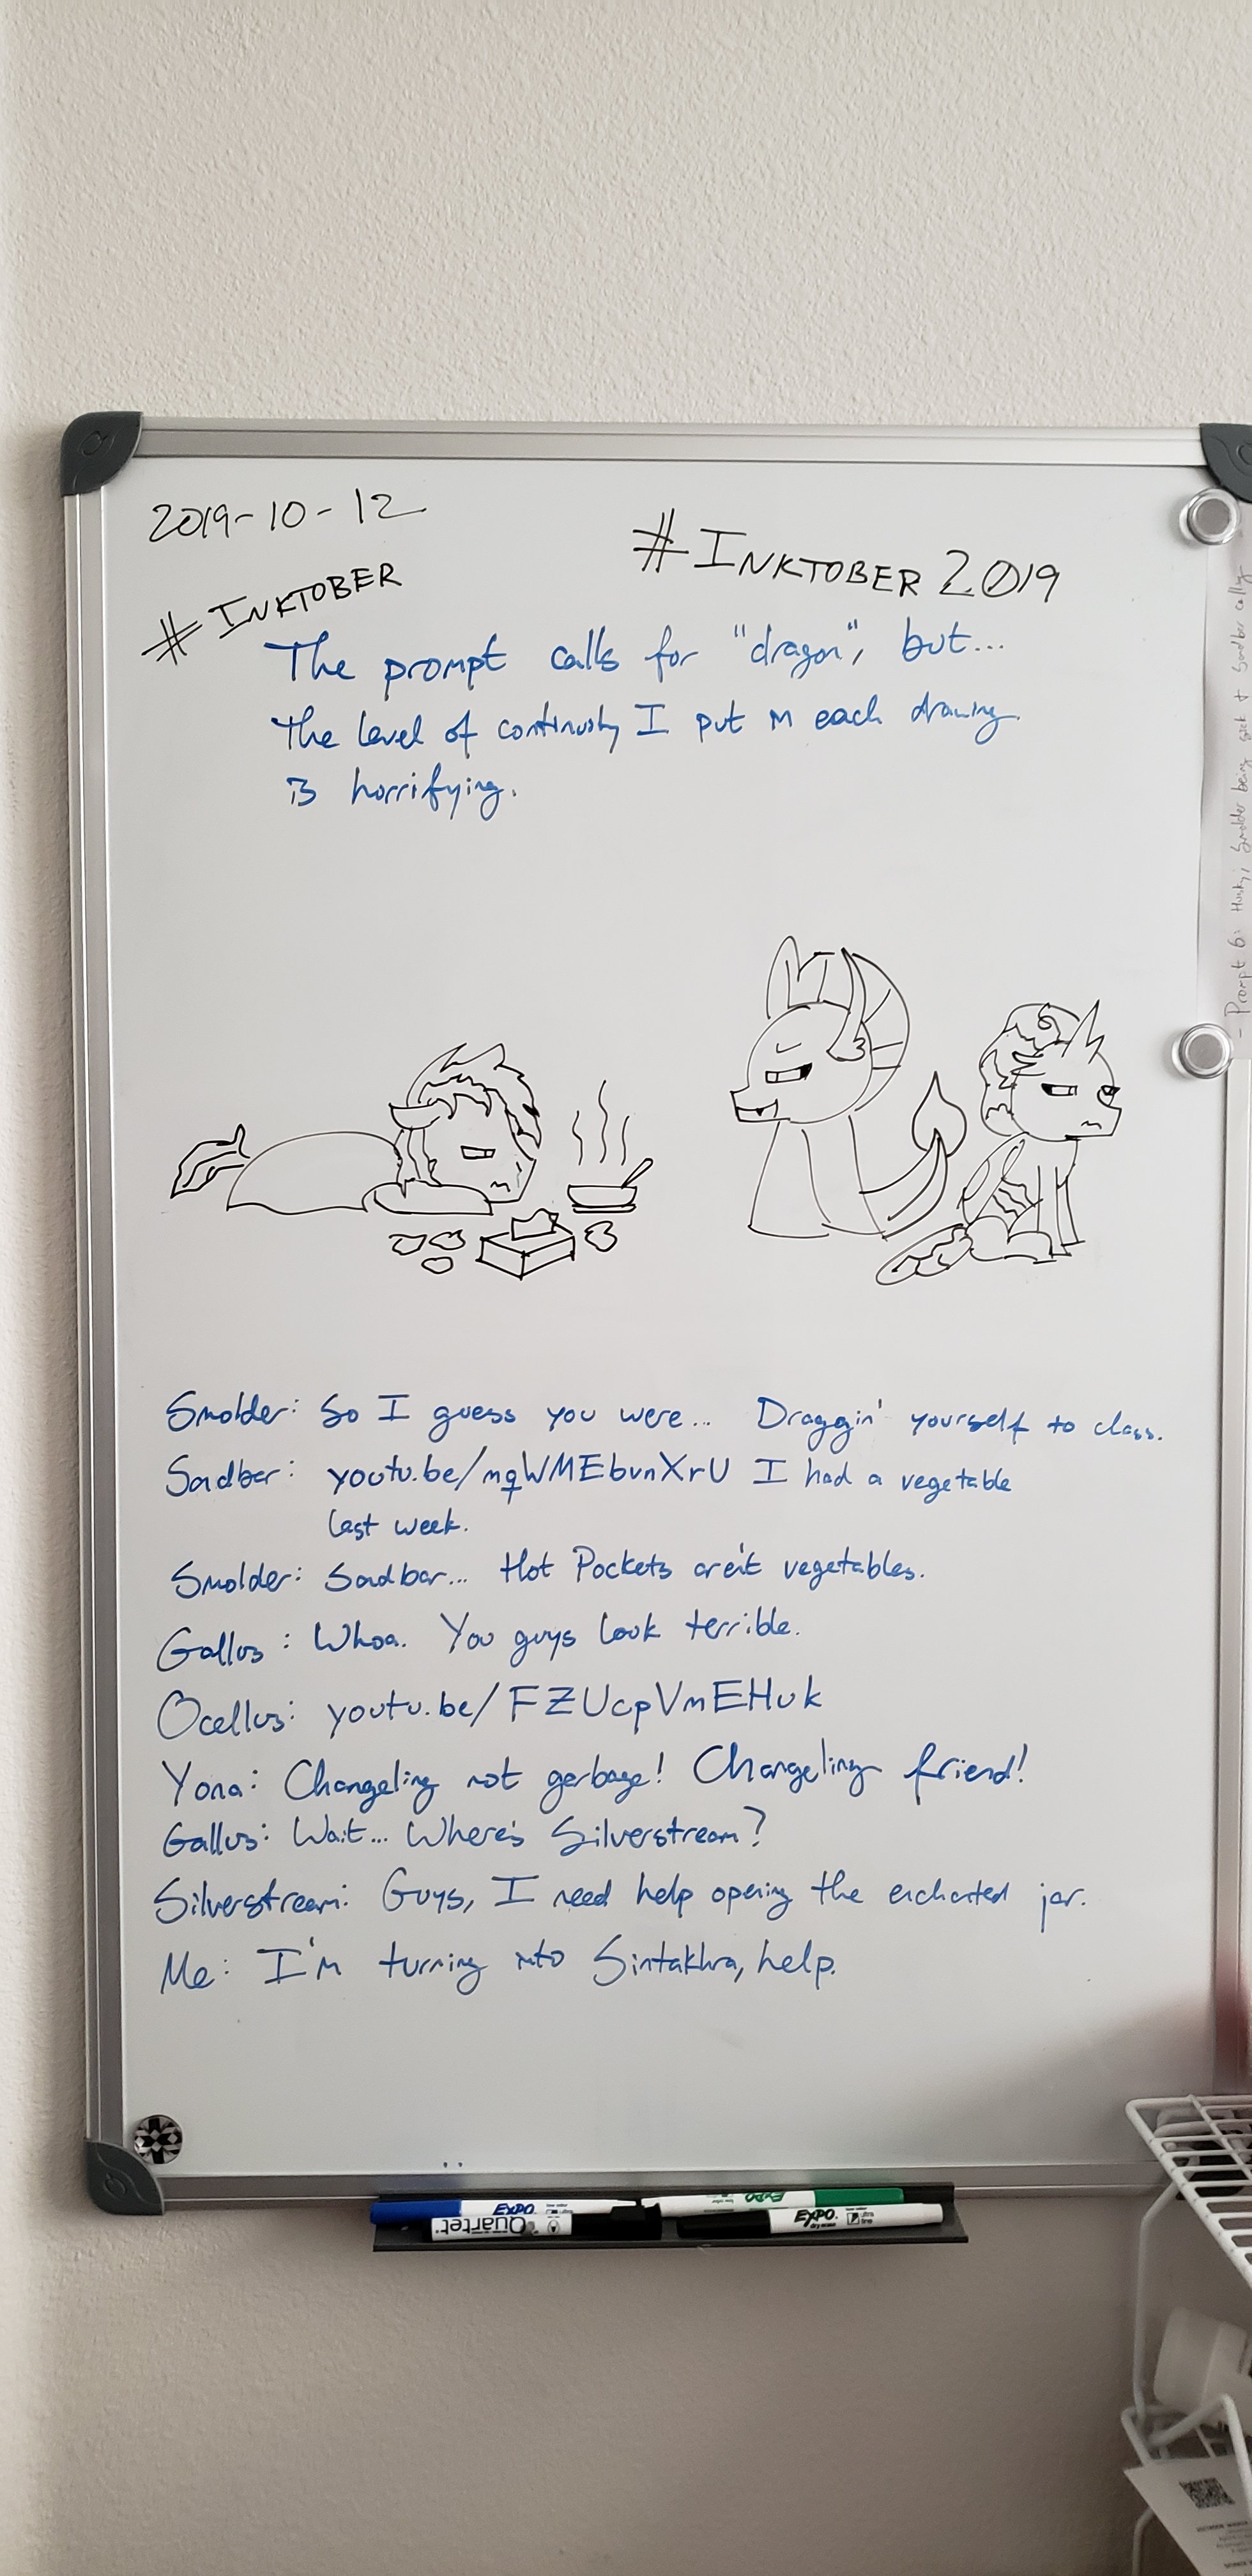 2019-10-12
#INKTOBER
#INKTOBER 2019
The prompt calls for "dragon", but...
the level of continuity I put in each drawing
is horrifying.
Smolder: So I guess you were... Draggin' yourself to class.
Sandbar: youtu.be/mqWMEbvnXrU I had a vegetable
last week.
Smolder: Sandbar... Hot Pockets aren't vegetables.
Gallus: Whoa. You guys look terrible.
Ocellus: youtu.be/FZUcpVmEHuk
Yona: Changeling not garbage! Changeling friend!
Gallus: Wait... Where's Silverstream?
Silverstream: Guys, I need help opening the enchanted jar.
Me: I'm turning into Sintakhra, help.
- Prompt 6: Husky; Smolder being sick + Sandbar
EXPO
Quartet
EXPO
EXPO